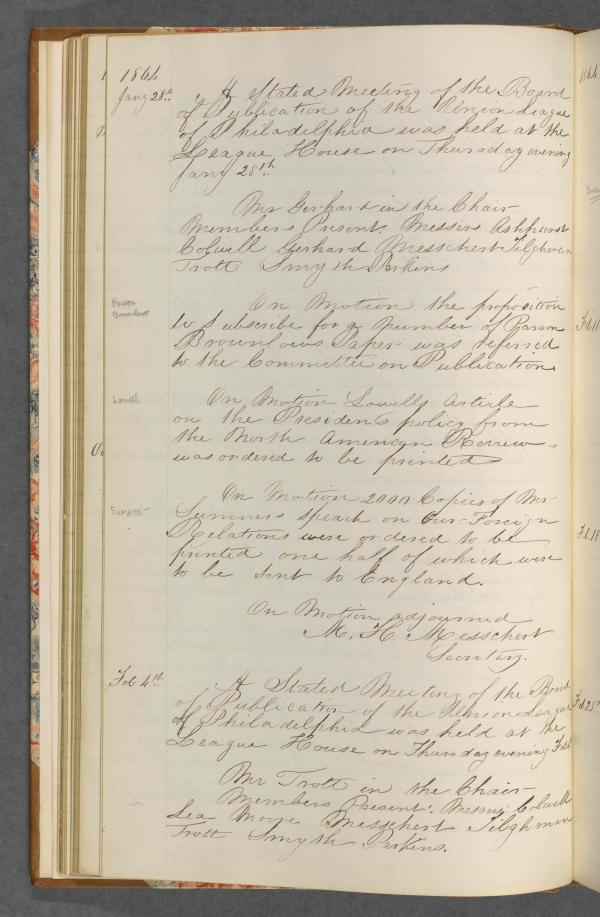 1864
Jany 28th. A Stated Meeting of the Board
of Publication of the Union League
of Philadelphia was held at the
League House on Thursday evening
Jany 28th
Mr Gerhard in the Chair
Members Present: Messers Ashhurst
Colwell Gerhard Messchert Tilghman
Trott Smyth Perkins
Parson
Brownlow
On Motion the proposition
to Subscribe for a Number of Parson
Brownlows Paper was referred
to the Committee on Publication.
Lowell
On Motion Lowells Article
on the Presidents policy from
the North American Review
was ordered to be printed
Sumner
On Motion 2000 Copies of Mr
Sumners speach on Our Foreign
Relations were ordered to be
printed one half of which were
to be sent to England.
On Motion adjourned
M. H. Messchert
Secretary.
Feb 4th. A Stated Meeting of the Board
of Publication of the Union League
of Philadelphia was held at the
League House on Thursday evening Feb 4
Mr Trott in the Chair
Members Present: Messrs Colwell
Lea Moore Messchert Tilghman
Trott Smyth Perkins.
1864
Feb 11
Feb 18
Feb 25